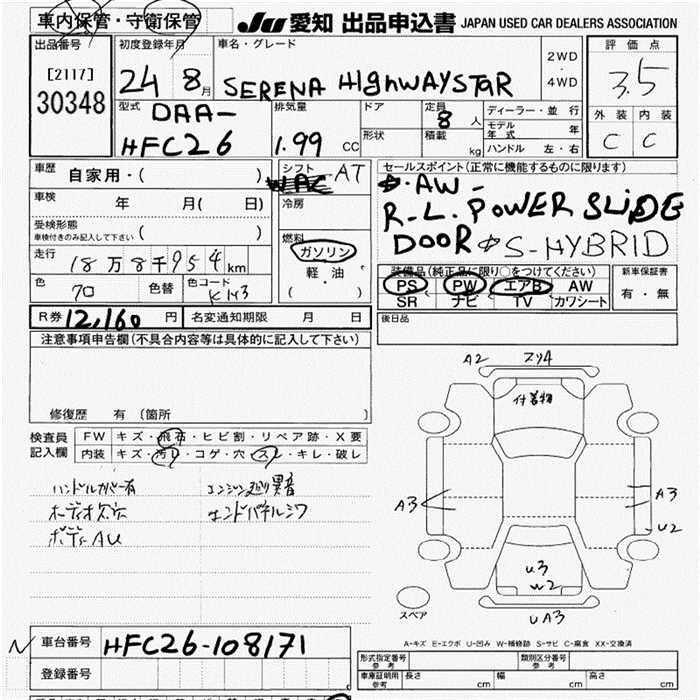 車内保管・守衛保管
JU 愛知 出品申込書 JAPAN USED CAR DEALERS ASSOCIATION
出品番号
[2117]
30348
初度登録年月
24 8月
車名・グレード
SERENA HIGHWAYSTAR
2WD
・
4WD
評価点
3.5
外装 内装
C C
型式
DAA-
HFC26
排気量
1.99 CC
ドア
形状
定員
8 人
積載
kg
ディーラー・並行
モデル年式 年
ハンドル 左・右
車歴 自家用・( )
車検 年 月( 日)
受検形態
車検付きのみ記入して下さい ( )
走行 18万8千954km
色 70
色替
色コード
シフト AT
冷房
燃料
ガソリン
軽・油
( ・ )
セールスポイント(正常に機能するものに限ります)
・AW-
R-L.POWER SLIDE
DOOR S-HYBRID
装備品(純正品に限り○をつけてください)
PS PW エアB AW
SR ナビ TV カワシート
新車保証書
有・無
R券 12,160 円
名変通知期限 月 日
後日品
注意事項申告欄(不具合内容等は具体的に記入して下さい)
修復歴 有 (箇所 )
検査員記入欄
FW キズ・飛石・ヒビ割・リペア跡・X要
内装 キズ・汚レ・コゲ・穴・スレ・キレ・破レ
ハンドルカバー有
オーディオ欠
ボディAU
エンジン廻り異音
エンドパネルシワ
A2 スリ4
付着物
A3
A3
U2
U3
W2
UA3
スペア
A-キズ E-エクボ U-凹み W-補修跡 S-サビ C-腐食 XX-交換済
N 車台番号 HFC26-108171
登録番号
形式指定番号 参考
類別区分番号 参考
車庫証明用 参考 長さ cm 幅 cm 高さ cm